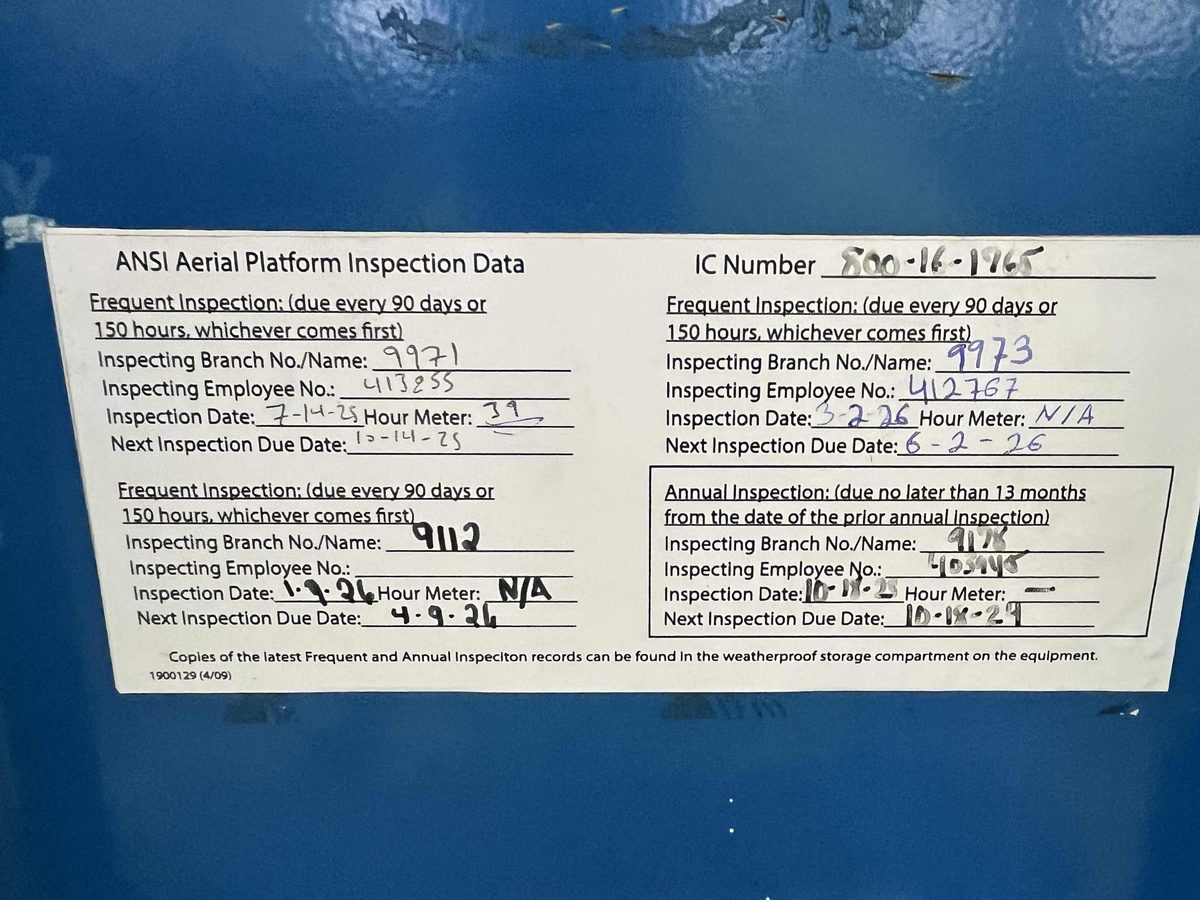 ANSI Aerial Platform Inspection Data
IC Number 800-16-1965
Frequent Inspection: (due every 90 days or
150 hours, whichever comes first)
Inspecting Branch No./Name: 9971
Inspecting Employee No.: 413255
Inspection Date: 7-14-25 Hour Meter: 39
Next Inspection Due Date: 10-14-25
Frequent Inspection: (due every 90 days or
150 hours, whichever comes first)
Inspecting Branch No./Name: 9973
Inspecting Employee No.: 412767
Inspection Date: 3-2-26 Hour Meter: N/A
Next Inspection Due Date: 6-2-26
Frequent Inspection: (due every 90 days or
150 hours, whichever comes first)
Inspecting Branch No./Name: 9112
Inspecting Employee No.:
Inspection Date: 1.9.26 Hour Meter: N/A
Next Inspection Due Date: 4.9.26
Annual Inspection: (due no later than 13 months
from the date of the prior annual inspection)
Inspecting Branch No./Name:
Inspecting Employee No.:
Inspection Date: Hour Meter: —
Next Inspection Due Date:
Copies of the latest Frequent and Annual Inspeciton records can be found in the weatherproof storage compartment on the equipment.
1900129 (4/09)